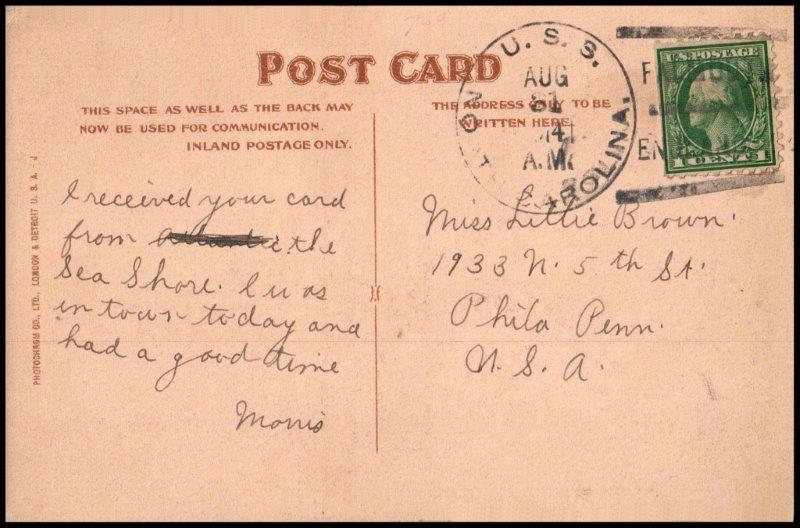 POST CARD
THIS SPACE AS WELL AS THE BACK MAY
NOW BE USED FOR COMMUNICATION.
INLAND POSTAGE ONLY.
THE ADDRESS ONLY TO BE
WRITTEN HERE.
U. S. S.
NORTH CAROLINA.
AUG
A.M.
U.S. POSTAGE
1 CENT 1
I received your card
from the
Sea Shore. I was
in town today and
had a good time
Morris
Miss Lillie Brown.
1933 N. 5 th St.
Phila Penn.
U. S. A.
PHOTOCHROM CO., LTD., LONDON & DETROIT U. S. A.